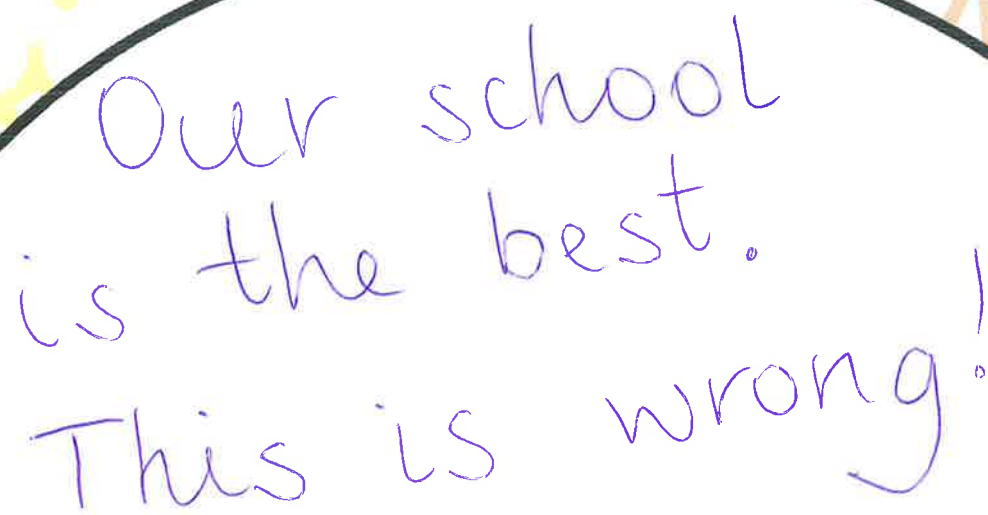 Our school
is the best.
This is wrong!